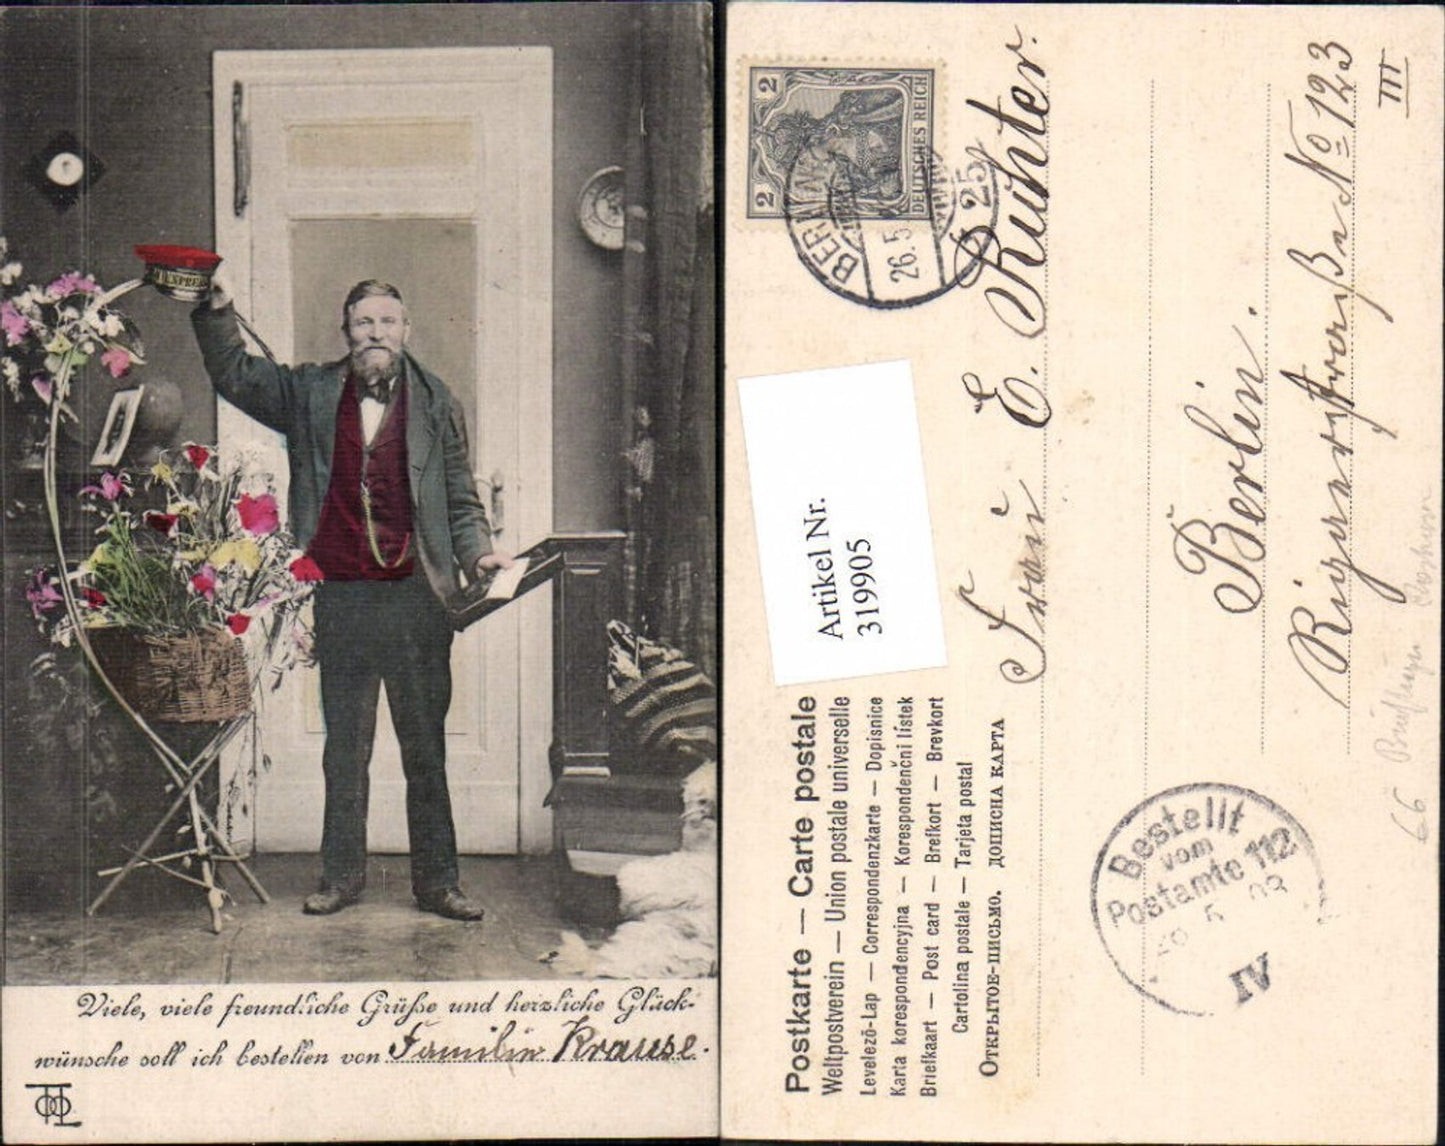 Viele, viele freundliche Grüße und herzliche Glück-
wünsche soll ich bestellen von Familie Krause.
2
2
DEUTSCHES REICH
BERLIN
25
26.5
Artikel Nr.
319905
Postkarte — Carte postale
Weltpostverein — Union postale universelle
Levelező-Lap — Correspondenzkarte — Dopisnice
Karta korespondencyjna — Korespondenční lístek
Briefkaart — Post card — Brefkort — Brevkort
Cartolina postale — Tarjeta postal
Открытое-письмо. дописна карта
Frau E. Richter.
Berlin.
Rigaerstraße No 123
III
Bestellt
vom
Postamte 112
5 03
IV
66